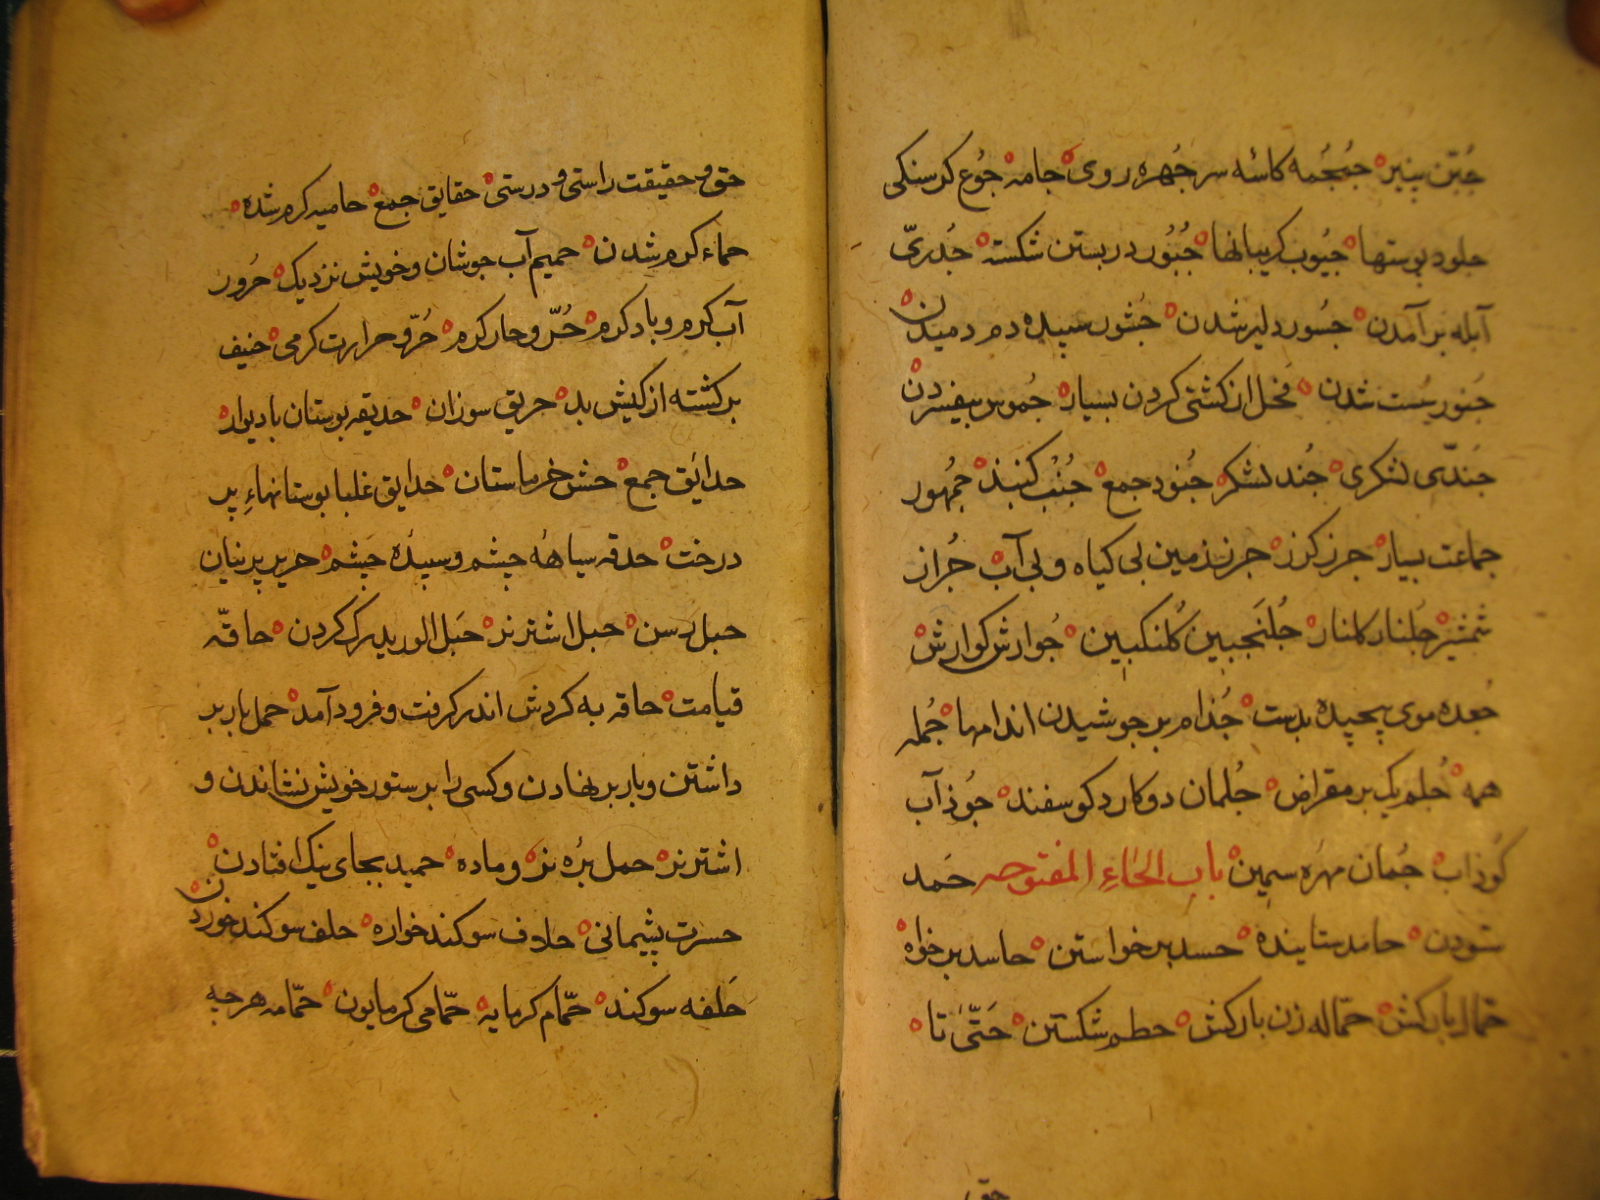 جُبّن پنیر جُمجُمه کاسهٔ سر جُهره روی جامه جُوع کرسنکی
جلود پوستها جیُوب کریبانها جُبُور دربستن شکسته جُدریّ
آبله برآمدن جسُور دلیر شدن جُشُور سپیده دم دمیدن
سُست شدن از کشتی کردن بسیار جُموس بیفسردن
جُندّی لشکری جُند لشکر جُنود جمع جُنُب جُمهور
جماعت بسیار جرز کرز جرز زمین بی کیاه و بی آب جُراز
شمشیر جُلنار کلنار جُلنَجبین کُلنکبین جُوارش کوارش
جُعده موی پیچیده بدست جُذام برجوشیدن اندامها جُمله
همه جُلم یک بر مقراض جُلمان دوکارد کوسفند جُوذآب
کُوذاب جُمان مهرهٔ سیمین باب الحاءِ المفتوحه حَمد
ستودن حامد ستاینده حسد بدخواستن حاسد بدخواه
حمّال بارکش حمّاله زن بارکش حطم شکستن حَتّیٰ تا
حق
حق و حقیقت راستی و درستی حقایق جمع حامیه کرم شده
حماء کرم شدن حمیم آب جوشان و خویش نزدیک حُرور
آب کرم و باد کرم حُرّ و حار کرم حُرّ و حرارت کرمی حنیف
برکشته از کیش بد حریق سوزان حدیقه بوستان با دیوار
حدایق جمع حش خرماستان حدایق غلبا بوستانهاءِ پر
درخت حدقه سیاههٔ چشم و سپیدهٔ چشم حریر پرنیان
حبل رسن حبل اشتر نر حَبل الورید رک کردن حاقّه
قیامت حاقه به کردش اندر کرفت و فرود آمد حمل بار بر
داشتن و بار برنهادن و کسی را بر ستور خویش نشاندن و
اشتر نر حمل برّه نر و ماده حمید بجای نیک افتادن
حسرت پشیمانی حلاف سوکند خواره حلف سوکند خوردن
حَلفه سوکند حمّام کرمابه حمّامی کرمابون حمّامه هرچه